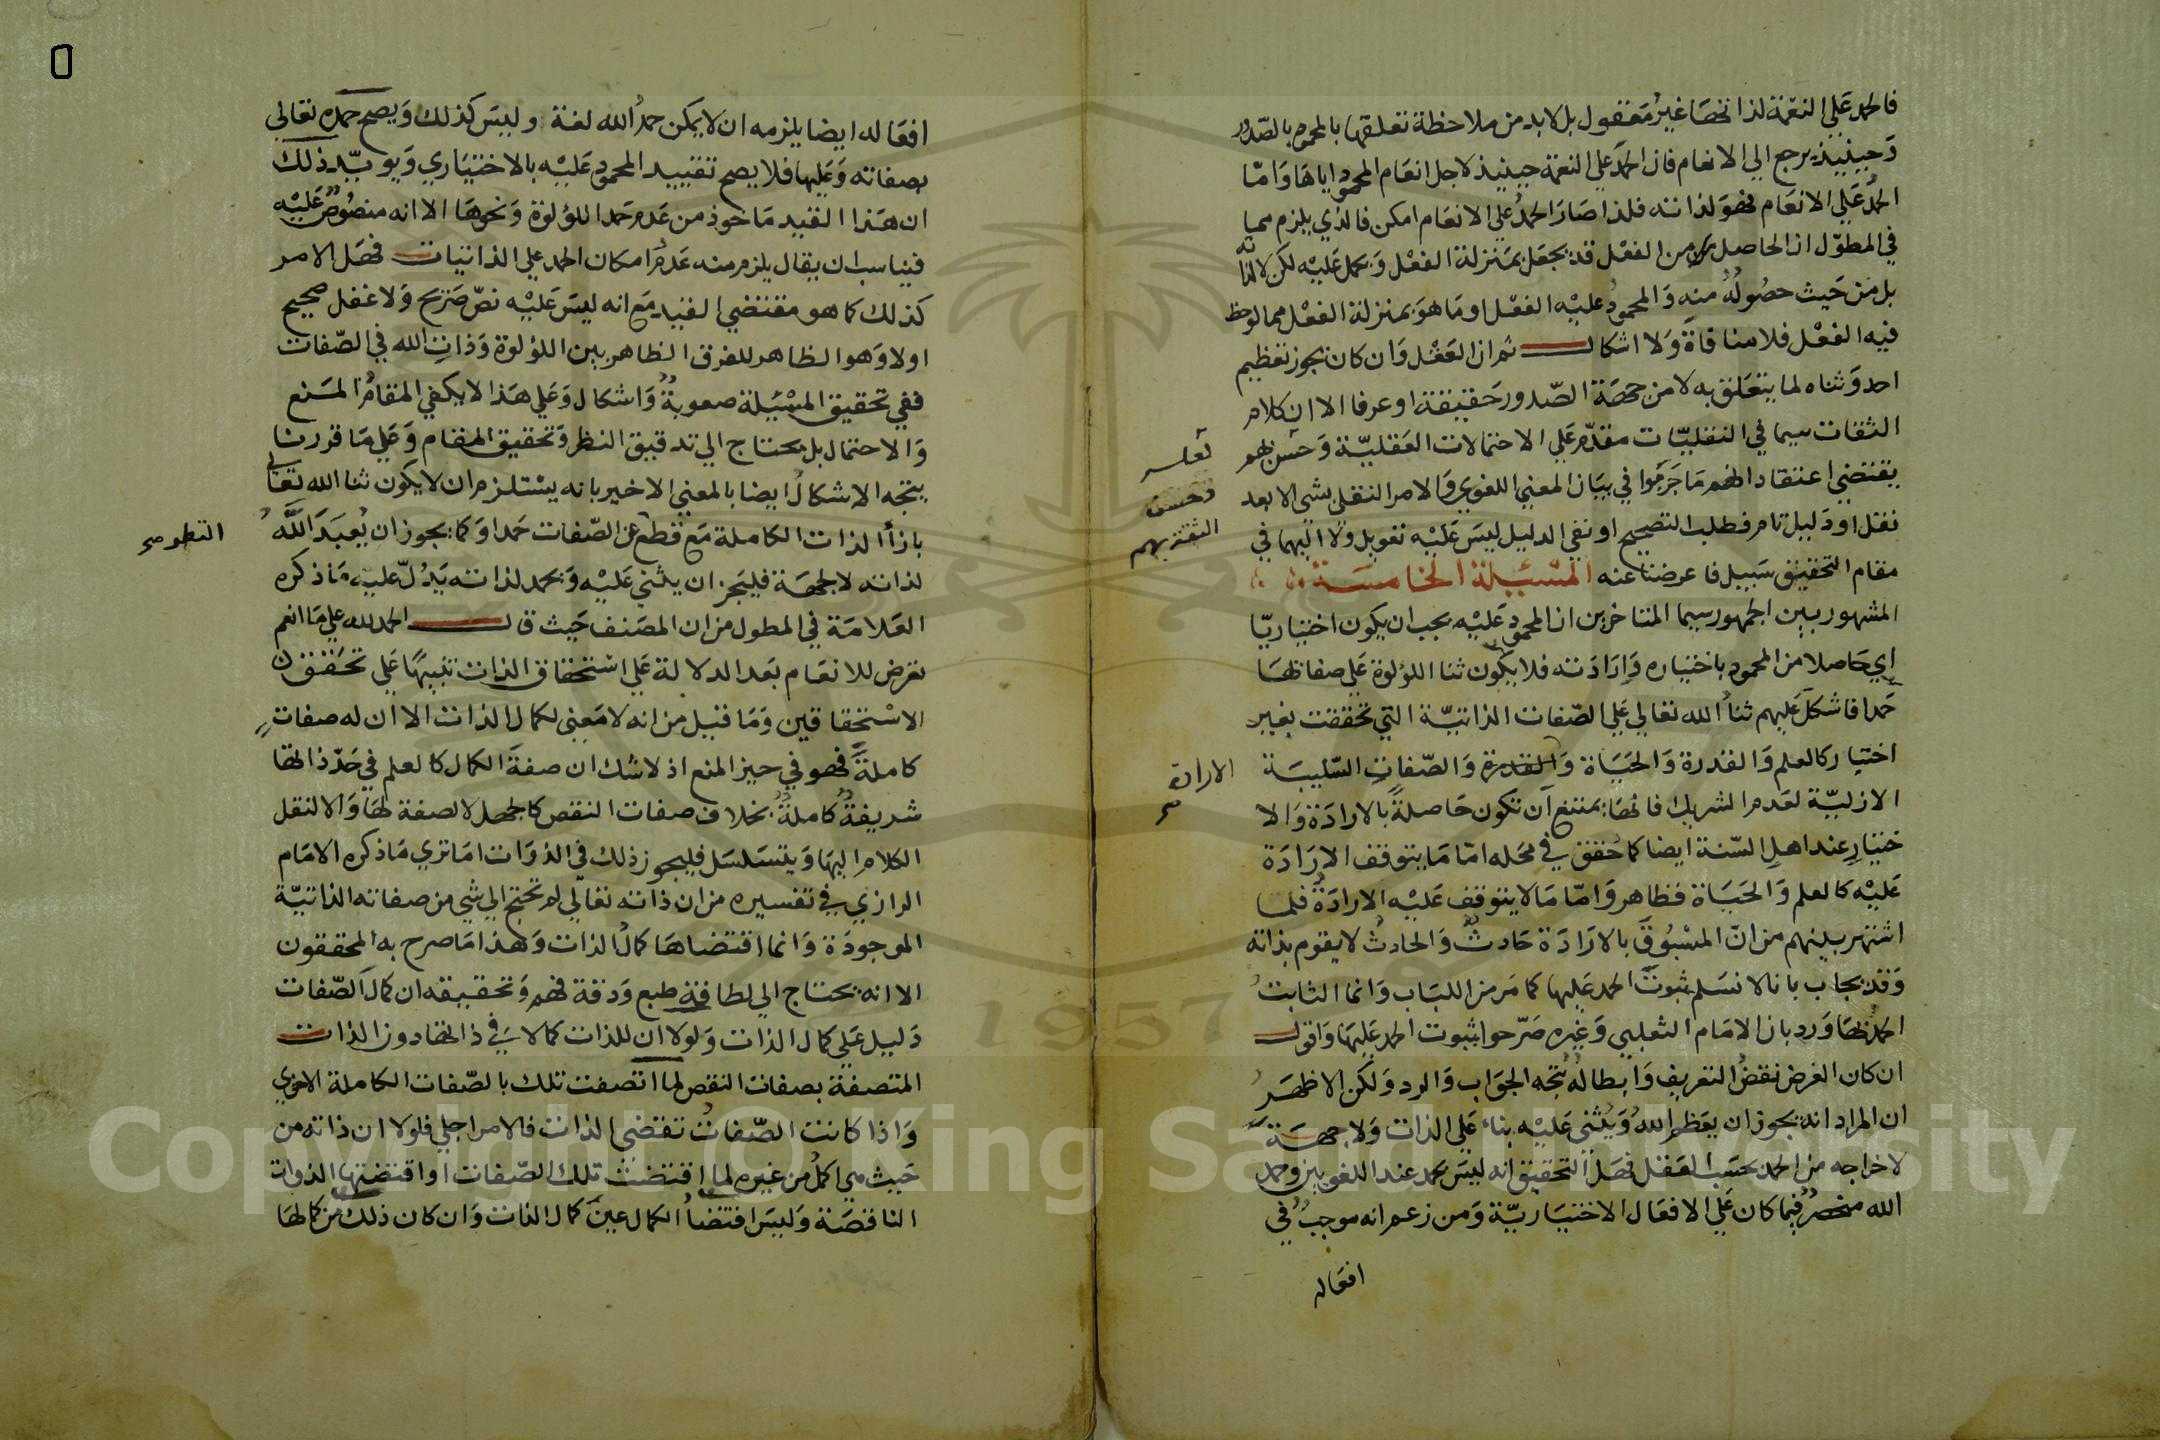 فالحمد على النعمة لذاتها غير معقول بل لابد من ملاحظة تعلقها بالمحمود بالصدور
وحينيذ يرجع الى الانعام فان الحمد على النعمة حينيذ لاجل انعام المحمود اياها واما
الحمد على الانعام فهو لذاته فلذا صار الحمد على الانعام امكن فالذي يلزم مما
في المطول ان الحاصل من الفعل قد يجعل بمنزلة الفعل ويحمل عليه لكن لا لذاته
بل من حيث حصوله منه والمحمود عليه الفعل او ما هو بمنزلة الفعل مما لوحظ
فيه الفعل فلا منافاة ولا اشكال ثم ان العقل وان كان يجوز تعظيم
احد وثناه لما يتعلق به لا من جهة الصدور حقيقة او عرفا الا ان كلام
الثقات سيما في النقليات مقدم على الاحتمالات العقلية وحسن بهم
يقتضي اعتقاد انهم ما جزموا في بيان المعنى اللغوي والامر النقلي بشى الا بعد
نقل او دليل تام فطلب التصحيح او نفي الدليل ليس عليه تعويل ولا اليهما في
مقام التحقيق سبيل فاعرضنا عنه المسيلة الخامسة
المشهور بين الجمهور سيما المتاخرين ان المحمود عليه يجب ان يكون اختياريا
اي حاصلا من المحمود باختياره وارادته فلا يكون ثنا اللؤلوة على صفاتها
حمدا فاشكل عليهم ثناء الله تعالى على الصفات الذاتية التي تحققت بغير
اختيار كالعلم والقدرة والحياة والقدرة والصفات السلبية
الازلية لعدم الشريك فانها يمتنع ان تكون حاصلة بالارادة والا
ختيار عند اهل السنة ايضا كما حقق في محله اما ما يتوقف الارادة
عليه كالعلم والحياة فظاهر واما ما لا يتوقف عليه الارادة فلما
اشتهر بينهم من ان المسبوق بالارادة حادث والحادث لا يقوم بذاته
وقد يجاب بانا لا نسلم ثبوت الحمد عليها كما مر من اللباب وانما الثابت
الحمد بها ورد بان الامام الثعلبي وغيره صرحوا بثبوت الحمد عليها واقول
ان كان الغرض نقض التعريف وابطاله يتجه الجواب والرد ولكن الاظهر
ان المراد انه يجوز ان يعظم الله ويثنى عليه بناء على الذات ولا جهة
لاخراجه من الحمد بحسب العقل فهل التحقيق انه ليس بحمد عند اللغويين وحمد
الله منحصر فيما كان على الافعال الاختيارية ومن زعم انه موجب في
افعاله
وتحسين
الثقة بهم
الارادة
صح
افعاله ايضا يلزمه ان لا يمكن حمد الله لغة وليس كذلك ويصح حمده تعالى
بصفاته وعليها فلا يصح تقييد المحمود عليه بالاختياري ويويد ذلك
ان هذا القيد ماخوذ من عدم حمد اللؤلوة ونحوها الا انه منصوص عليه
فيناسب ان يقال يلزم منه عدم امكان الحمد على الذاتيات فهل الامر
كذلك كما هو مقتضى القيد مع انه ليس عليه نص صريح ولا عقل صحيح
اولا وهو الظاهر للفرق الظاهر بين اللؤلوة وذات الله في الصفات
ففي تحقيق المسيلة صعوبة واشكال وعلى هذا لا يكفي المقام المنع
والاحتمال بل يحتاج الى تدقيق النظر وتحقيق المقام وعلى ما قررنا
يتجه الاشكال ايضا بالمعنى الاخير بانه يستلزم ان لا يكون ثنا الله تعالى
بازاء الذات الكاملة مع قطع عن الصفات حمدا وكما يجوز ان يعبد الله
لذاته لا لجهة فليجز ان يثني عليه ويحمد لذاته يدل عليه ما ذكره
العلامة في المطول من ان المصنف حيث قال الحمد لله على ما انعم
تعرض للانعام بعد الدلالة على استحقاق الذات تنبيها على تحقق
الاستحقاقين وما قيل من انه لا معنى لكمال الذات الا ان له صفات
كاملة فهو في حيز المنع اذ لا شك ان صفة الكمال كالعلم في حد ذاتها
شريفة كاملة بخلاف صفات النقص كالجهل لا لصفة لها والا لنقل
الكلام اليها ويتسلسل فليجوز ذلك في الذوات اما ترى ما ذكره الامام
الرازي في تفسيره من ان ذاته تعالى لم تحتج الى شي من صفاته الذاتية
الموجودة وانما اقتضاها كمال الذات وهذا ما صرح به المحققون
الا انه يحتاج الى لطافة طبع ودقة فهم وتحقيقه ان كمال الصفات
دليل على كمال الذات ولولا ان للذات كمالا في ذاتها دون الذات
المتصفة بصفات النقص لما اتصفت تلك بالصفات الكاملة الاخرى
واذا كانت الصفات تقتضي الذات فالامر اجلى فلولا ان ذاته من
حيث هي اكمل من غيره لما اقتضت تلك الصفات او اقتضتها الذوات
الناقصة وليس اقتضاء الكمال عين كمال الذات وان كان ذلك من كمالها
النظر صح